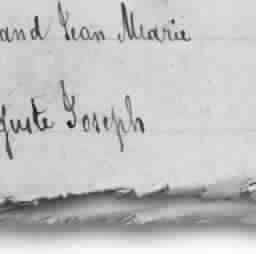 and Jean Marie
guste Joseph